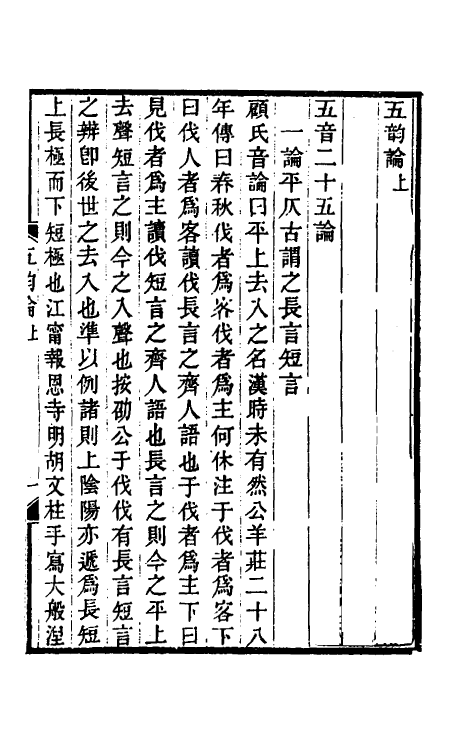 五韵論上
五音二十五論
一論平仄古謂之長言短言
顧氏音論曰平上去入之名漢時未有然公羊莊二十八
年傳曰春秋伐者爲客伐者爲主何休注于伐者爲客下
曰伐人者爲客讀伐長言之齊人語也于伐者爲主下曰
見伐者爲主讀伐短言之齊人語也長言之則今之平上
去聲短言之則今之入聲也按劭公于伐伐有長言短言
之辨卽後世之去入也準以例諸則上陰陽亦遞爲長短
上長極而下短極也江甯報恩寺明胡文柱手寫大般涅
五韵論上
一